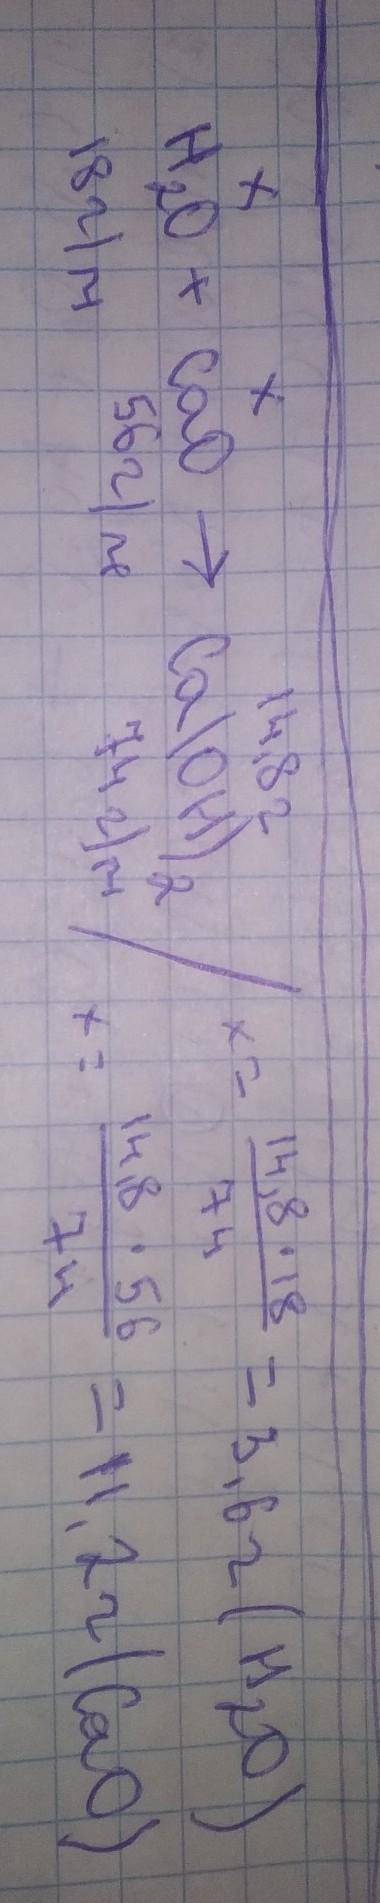 x x 14,8г
H₂O + CaO → Ca(OH)₂
18г/м 56г/м 74г/м
x = 14,8 · 18 / 74 = 3,6г (H₂O)
x = 14,8 · 56 / 74 = 11,2г (CaO)